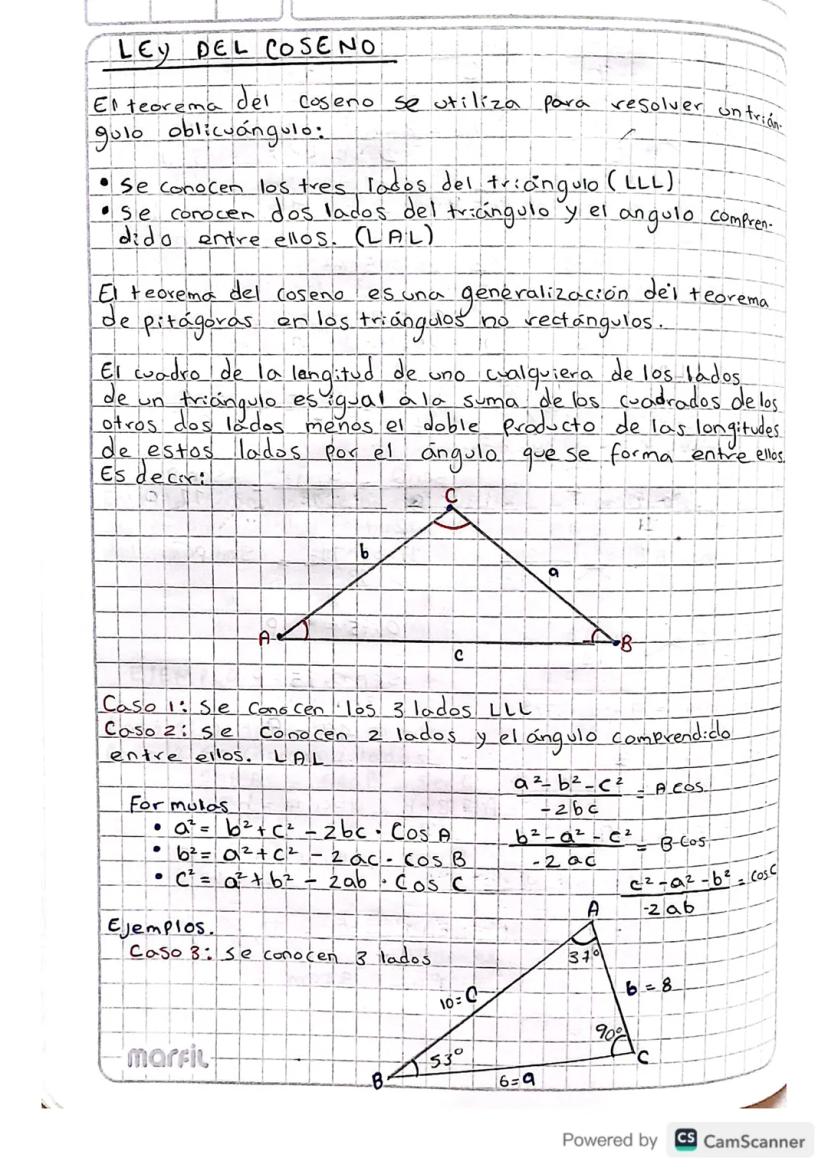 LEY DEL COSENO
El teorema del coseno se utiliza para resolver un trián-
gulo oblicuángulo:
• se conocen los tres lados del triángulo (LLL)
• se conocen dos lados del triángulo y el angulo compren-
dido entre ellos. (LAL)
El teorema del coseno es una generalización del teorema
de pitágoras en los triángulos no rectángulos.
El cuadro de la longitud de uno cualquiera de los lados
de un triángulo es igual a la suma de los cuadrados de los
otros dos lados menos el doble producto de las longitudes
de estos lados por el ángulo que se forma entre ellos.
Es decir:
C
b
a
A
B
c
Caso 1: se conocen los 3 lados LLL
Caso 2: se conocen 2 lados y el ángulo comprendido
entre ellos. LAL
Formulas
• a² = b² + c² - 2bc · Cos A
• b² = a² + c² - 2ac · cos B
• c² = a² + b² - 2ab · Cos C
a² - b² - c² / -2bc = A cos
b² - a² - c² / -2ac = B-Cos
c² - a² - b² / -2ab = cos C
Ejemplos.
Caso 3: se conocen 3 lados
A
37°
10 = C
b = 8
90°
C
53°
B
6 = a
marfil
Powered by CS CamScanner